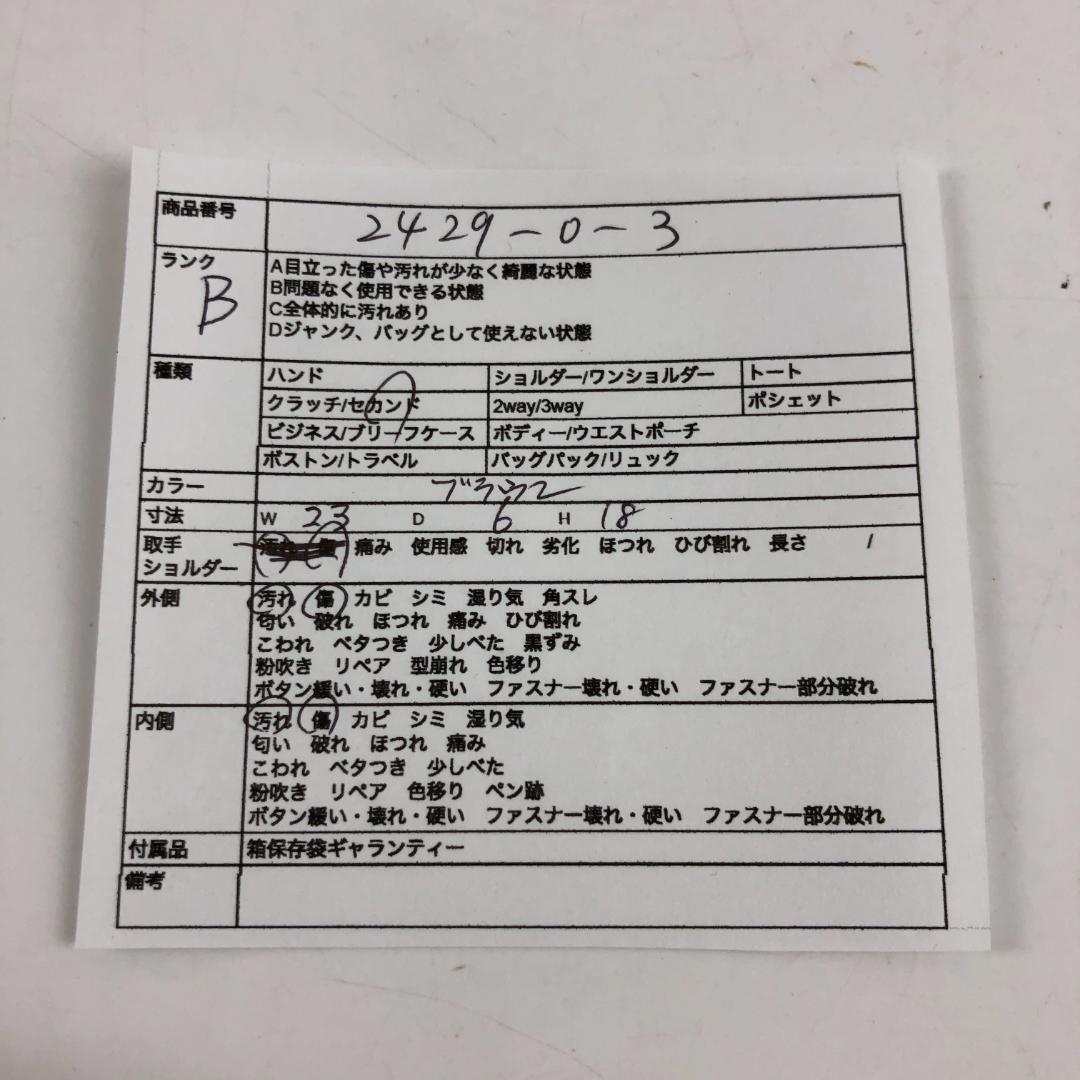 商品番号 2429-0-3
ランク B
A目立った傷や汚れが少なく綺麗な状態
B問題なく使用できる状態
C全体的に汚れあり
Dジャンク、バッグとして使えない状態
種類 ハンド ショルダー/ワンショルダー トート
クラッチ/セカンド 2way/3way ポシェット
ビジネス/ブリーフケース ボディー/ウエストポーチ
ボストン/トラベル バッグパック/リュック
カラー ブラウン
寸法 W 23 D 6 H 18
取手 汚れ 傷 痛み 使用感 切れ 劣化 ほつれ ひび割れ 長さ /
ショルダー
外側 汚れ 傷 カビ シミ 湿り気 角スレ
匂い 破れ ほつれ 痛み ひび割れ
こわれ ベタつき 少しべた 黒ずみ
粉吹き リペア 型崩れ 色移り
ボタン緩い・壊れ・硬い ファスナー壊れ・硬い ファスナー部分破れ
内側 汚れ 傷 カビ シミ 湿り気
匂い 破れ ほつれ 痛み
こわれ ベタつき 少しべた
粉吹き リペア 色移り ペン跡
ボタン緩い・壊れ・硬い ファスナー壊れ・硬い ファスナー部分破れ
付属品 箱保存袋ギャランティー
備考